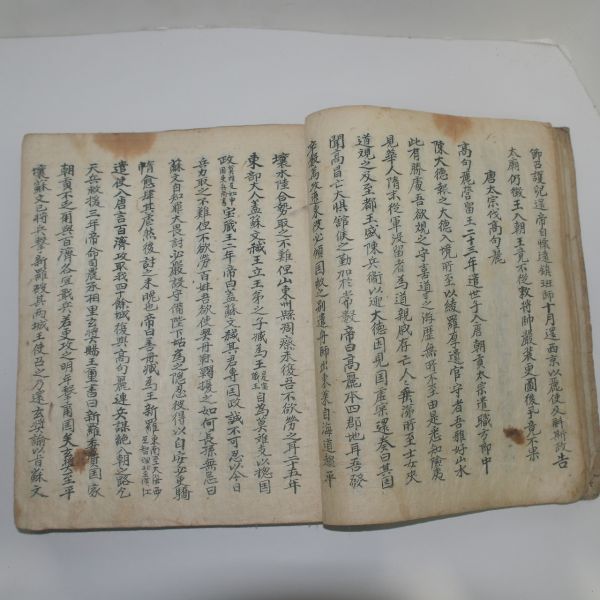 師召護兒還帝自懷遠鎮班師十月還西京以麗使及斛斯政告
太廟仍徵王入朝王竟不從敕將帥嚴裝更圖後擧竟不果
唐太宗伐高句麗
高句麗營留王二十三年遣世子入唐朝貢太宗遣職方郎中
陳大德報之大德入境所至以綾羅厚遺官守者吾雅好山水
此有勝處吾欲觀之守喜道之游歷無所不至由是悉知險夷
見華人隋末從軍沒留者爲道親戚存亡人人垂涕所至士女夾
道觀之及至都王盛陳兵衛以迎大德因見國虛
聞高昌亡大懼舘使之勤加於常數帝曰高麗本四郡地耳吾發
卒數萬攻遼東彼必傾國救之別遣舟師出東萊自海道趨平
壤水陸合勢取之不難但山東州縣凋瘵未復吾不欲勞之耳二十五年
東部大人盖蘇文弑王立王弟之子臧爲王自爲莫離支以總國
政寶藏王二年帝曰盖蘇文弑其君專國政誠不可忍以今日
兵力取之不難但不欲勞百姓吾欲使契丹靺鞨擾之如何長孫無忌曰
蘇文自知罪大畏討必嚴設守備陛下姑爲之隱忍彼得以自安必更驕
惰愈肆其惡然後討之未晩也帝曰善冊臧爲王新羅
遣使入唐言百濟攻取我四十餘城復與高句麗連兵謀絶朝之路乞
天兵救援三年帝命司農丞相里玄奬賜王璽書曰新羅委質國家
朝貢不乏爾與百濟各宜戢兵若更攻之明年擊爾國矣玄奬至平
壤蘇文已將兵擊新羅破其兩城王使召之乃還玄奬諭以旨蘇文